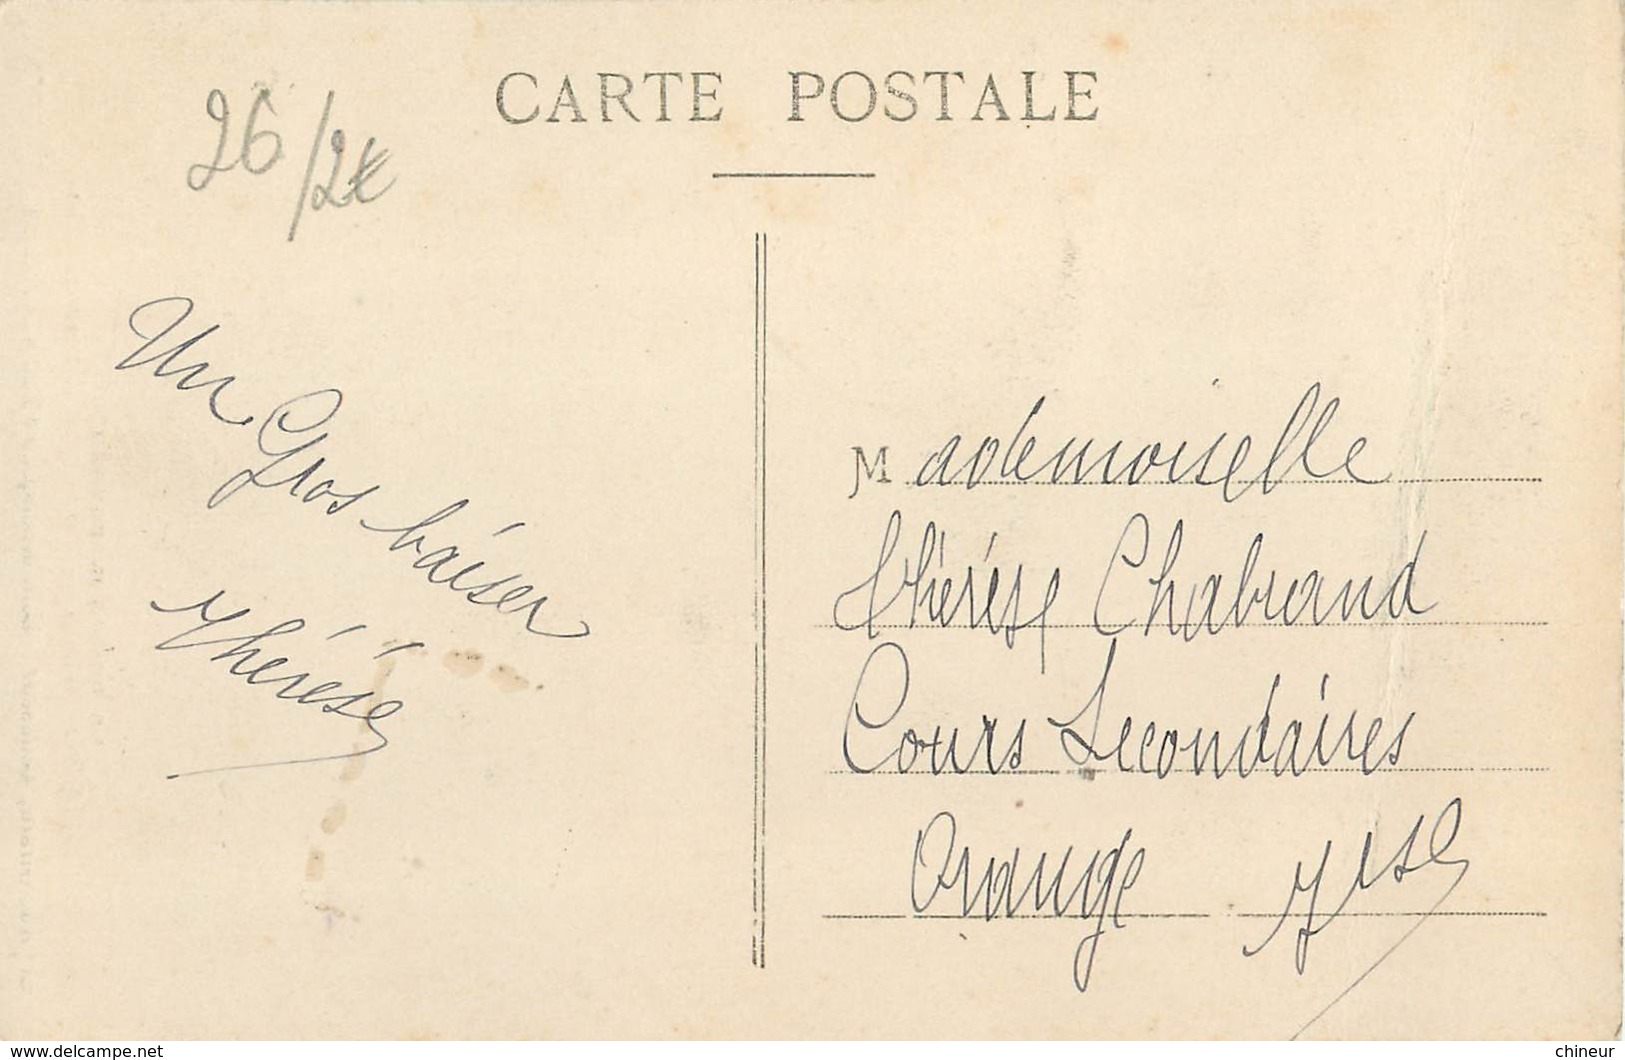 CARTE POSTALE
26/2€
Un Gros baiser
Thérèse
Mademoiselle
Thérèse Chabrand
Cours Secondaires
Orange
www.delcampe.net
chineur